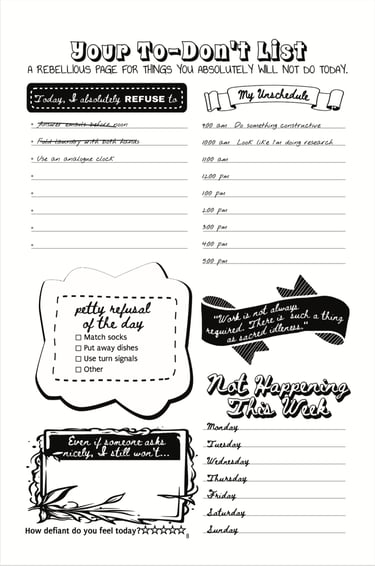 Your To-Don't List
A REBELLIOUS PAGE FOR THINGS YOU ABSOLUTELY WILL NOT DO TODAY.
Today, I absolutely REFUSE to
Answer emails before noon
Fold laundry with both hands
Use an analogue clock
My Unschedule
9:00 am Do something constructive
10:00 am Look like I'm doing research
11:00 am
12:00 pm
1:00 pm
2:00 pm
3:00 pm
4:00 pm
5:00 pm
petty refusal
of the day
Match socks
Put away dishes
Use turn signals
Other
"Work is not always
required. There is such a thing
as sacred idleness."
Even if someone asks
nicely, I still won't...
How defiant do you feel today?
Not Happening
This Week
Monday
Tuesday
Wednesday
Thursday
Friday
Saturday
Sunday